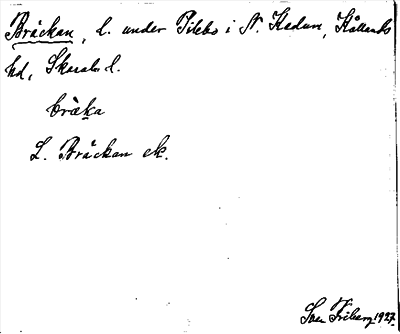 Bräckan, l. under Pilebo i N. Kedum, Kållands
hd, Skarab. l.
bràka
L. Bräckan ek.
Sven Friberg 1927.